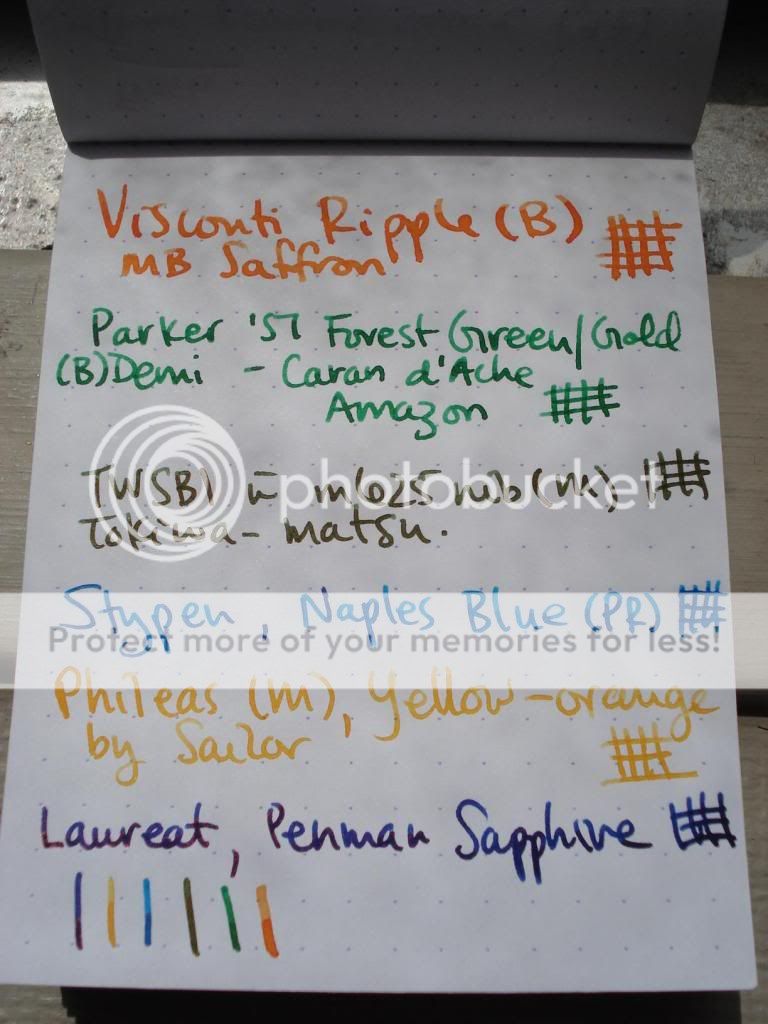 Visconti Ripple (B)
MB Saffron
Parker '51 Forest Green/Gold
(B) Demi - Caran d'Ache
Amazon
photobucket
TWSBI w̄ m625 nib (m),
Tokiwa-matsu.
Stypen, Naples Blue (PR)
Protect more of your memories for less!
Phileas (m), Yellow-orange
by Sailor
Laureat, Penman Sapphire